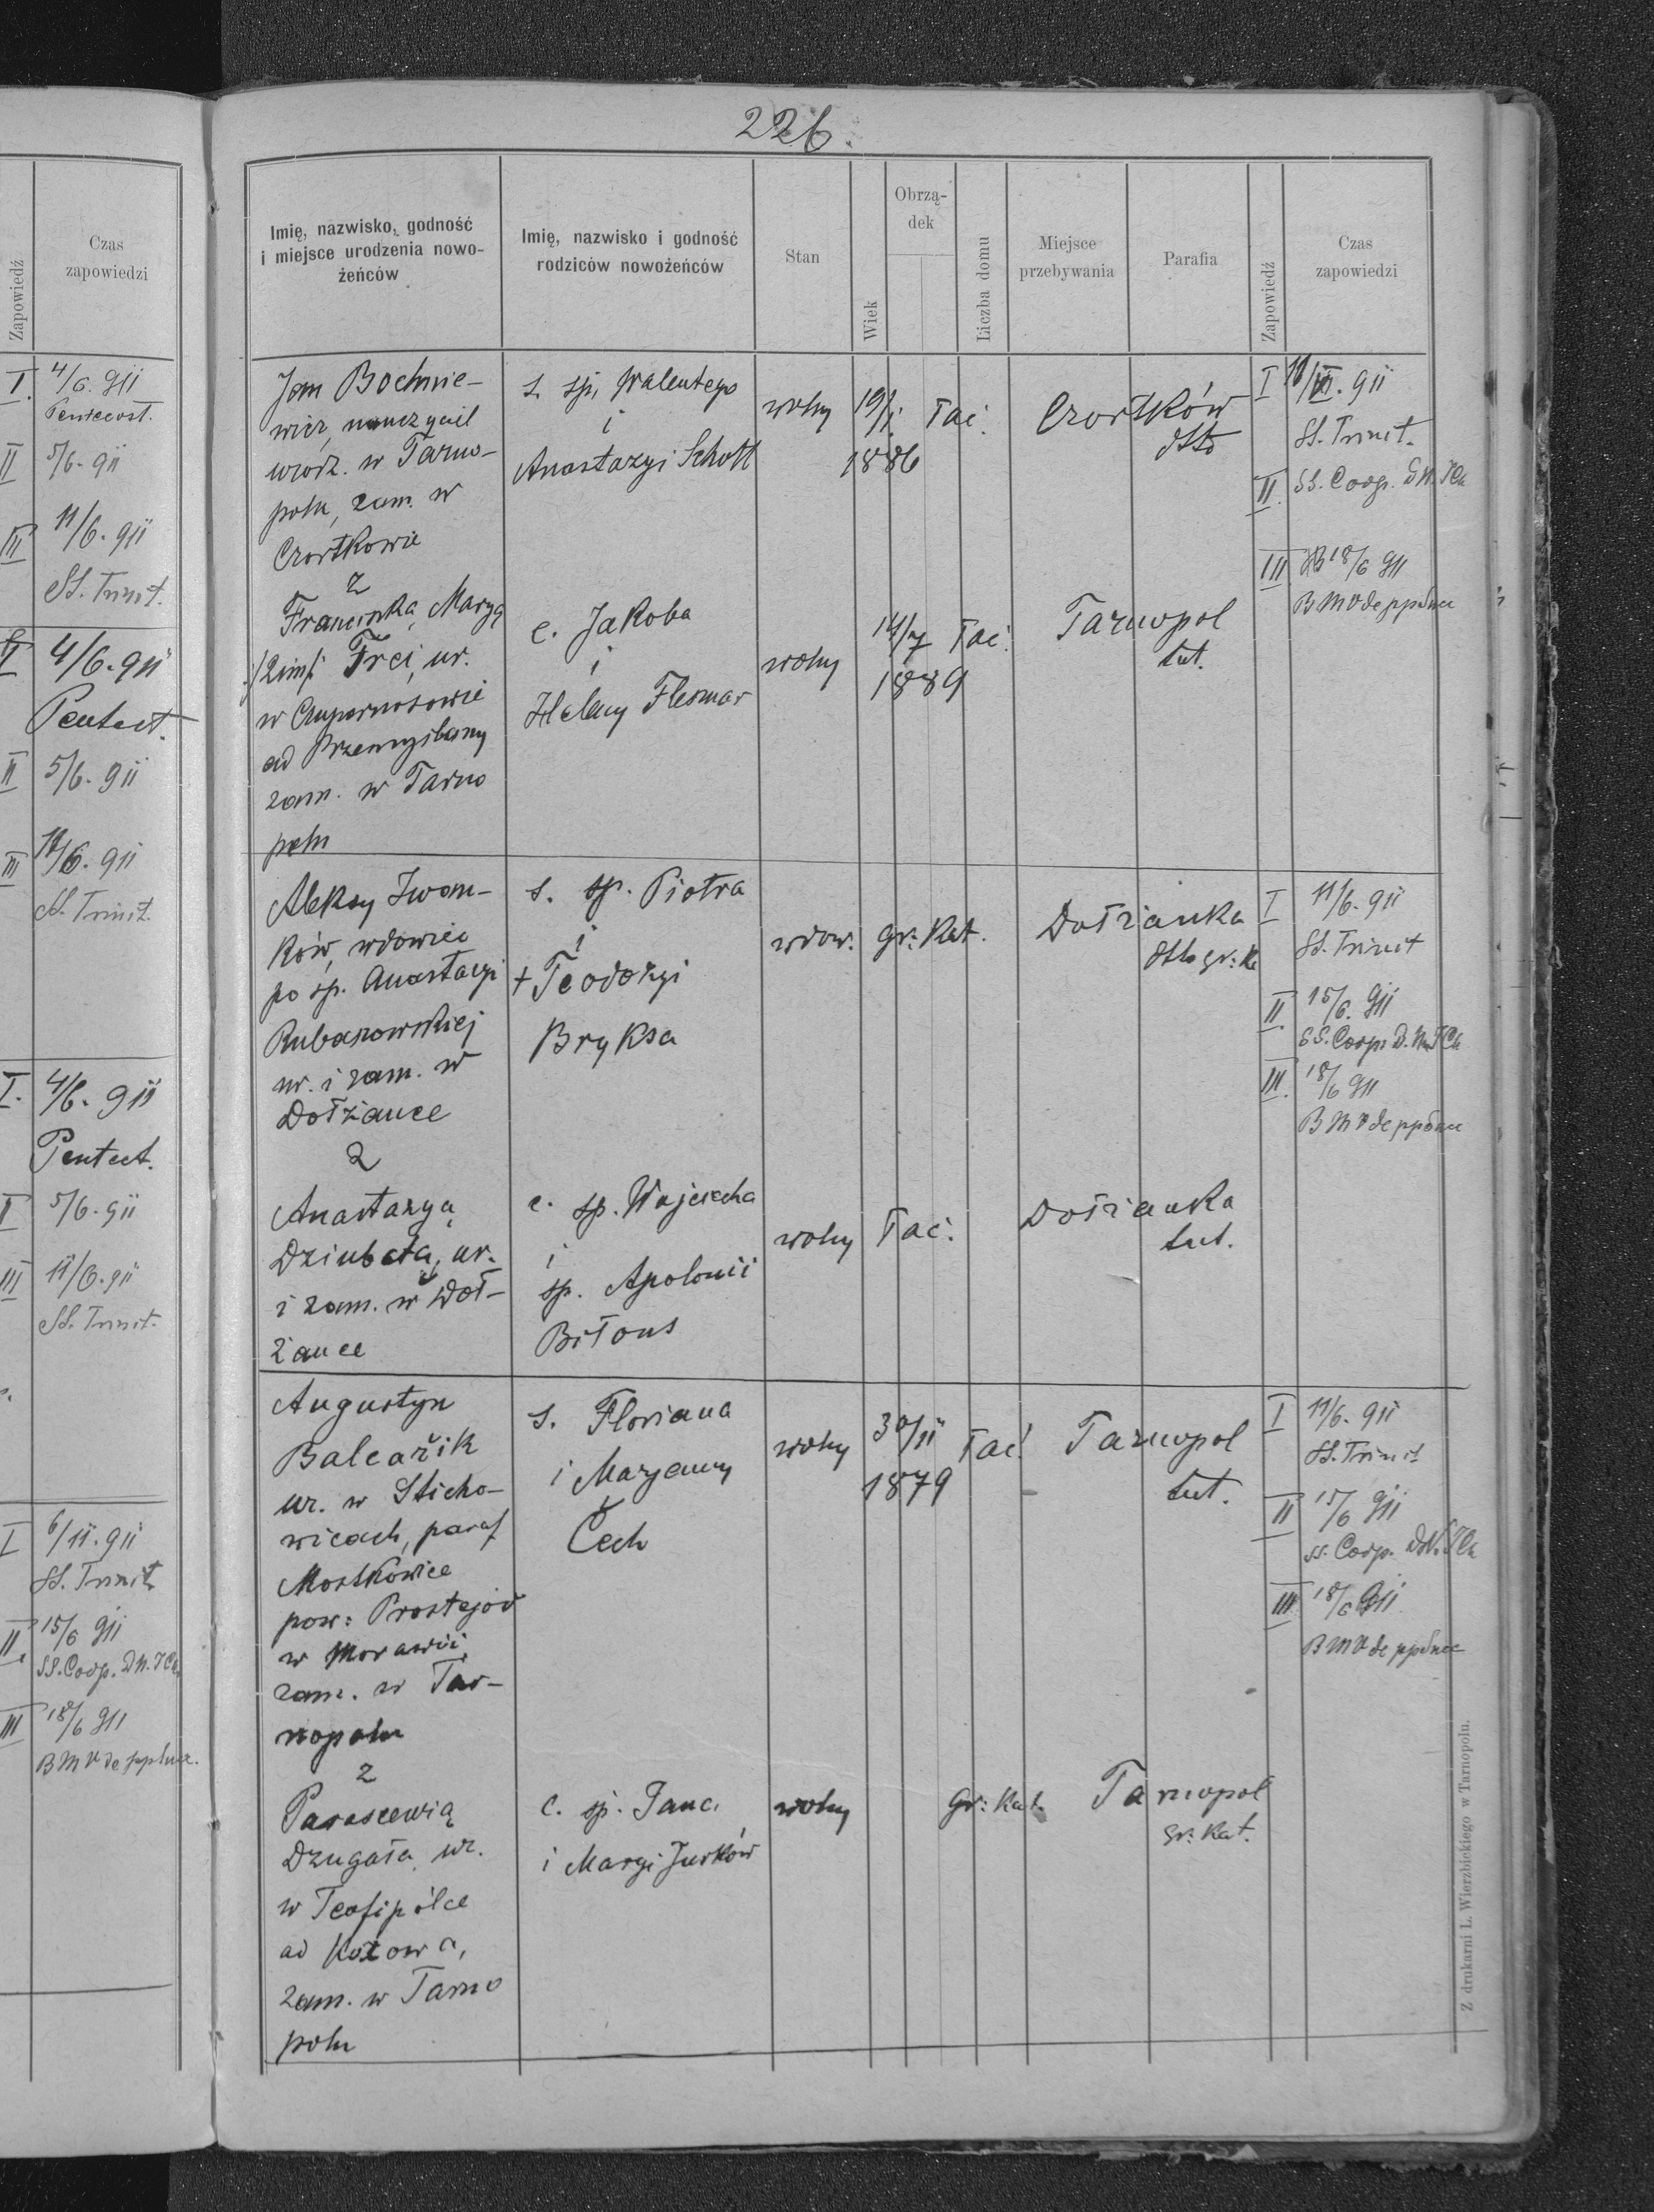 226.
Czas
zapowiedzi
Zapowiedź
I. 4/6. 911
Pentecost.
II 5/6. 911
III 11/6. 911
SS. Trinit.
I 4/6. 911
Pentect.
II 5/6. 911
III 11/6. 911
SS. Trinit.
I. 4/6. 911
Pentect.
II 5/6. 911
III 11/6. 911
SS. Trinit.
I 6/11. 911
SS. Trinit
II 15/6 911
SS. Corp. DN. JCh.
III 18/6 911
BMV de
Imię, nazwisko, godność
i miejsce urodzenia nowo-
żeńców
Imię, nazwisko i godność
rodziców nowożeńców
Stan
Wiek
Obrzą-
dek
Liczba domu
Miejsce
przebywania
Parafia
Zapowiedź
Czas
zapowiedzi
Jan Bochnie-
wicz, nauczyciel
urodz. w Tarno-
polu, zam. w
Czortkowie
z
Franciszką Maryą
/2im/ Frei, ur.
w
ad Przemyślany
zam. w Tarno
polu
s. sp. Walentego
i
Anastazyi Schott
wolny
19/1.
1886
łać.
Czortków
dtto
I 11/VI. 911
SS. Trinit.
II. SS. Corp. DN. JCh
III 18/6 911
BMV de
c. Jakoba
i
Heleny Flesmar
wolny
14/7
1889
łać.
Tarnopol
tut.
Aleksy Iwan-
ków, wdowiec
po sp. Anastazyi
Rubanowskiej
ur. i zam. w
Dołżance
z
Anastazyą
Dziubatą, ur.
i zam. w Doł-
żance
s. sp. Piotra
i
+ Teodozyi
Bryksa
wdow.
gr: Kat.
Dołżanka
dtto gr: K
I 11/6. 911
SS. Trinit
II. 15/6. 911
SS. Corp. D.N. JCh
III. 18/6 911
BMV de
c. sp. Wojciecha
i
sp. Apolonii
Biłous
wolny
łać.
Dołżanka
tut.
Augustyn
Balcařik
ur. w Sticho-
wicach, paraf
Mostkowice
pow: Prostejov
w Morawii
zam. w Tar-
nopolu
z
Parascewią
Dzugała, ur.
w Teofipólce
ad Kozowa,
zam. w Tarno
polu
s. Floriana
i Maryanny
Čech
wolny
30/11
1879
łać.
Tarnopol
tut.
I 11/6. 911
SS. Trinit
II 15/6 911
SS. Corp. DN. JCh
III 18/6 911
BMV de
c. sp. Jana
i Maryi Jurków
wolny
Gr: Kat.
Tarnopol
gr: Kat.
Z drukarni L. Wierzbickiego w Tarnopolu.